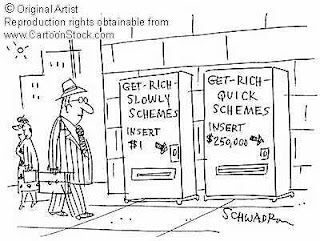 © Original Artist
Reproduction rights obtainable from
www.CartoonStock.com
GET-RICH-
SLOWLY
SCHEMES
INSERT
$1
GET-RICH-
QUICK
SCHEMES
INSERT
$250,000
SCHWADRON